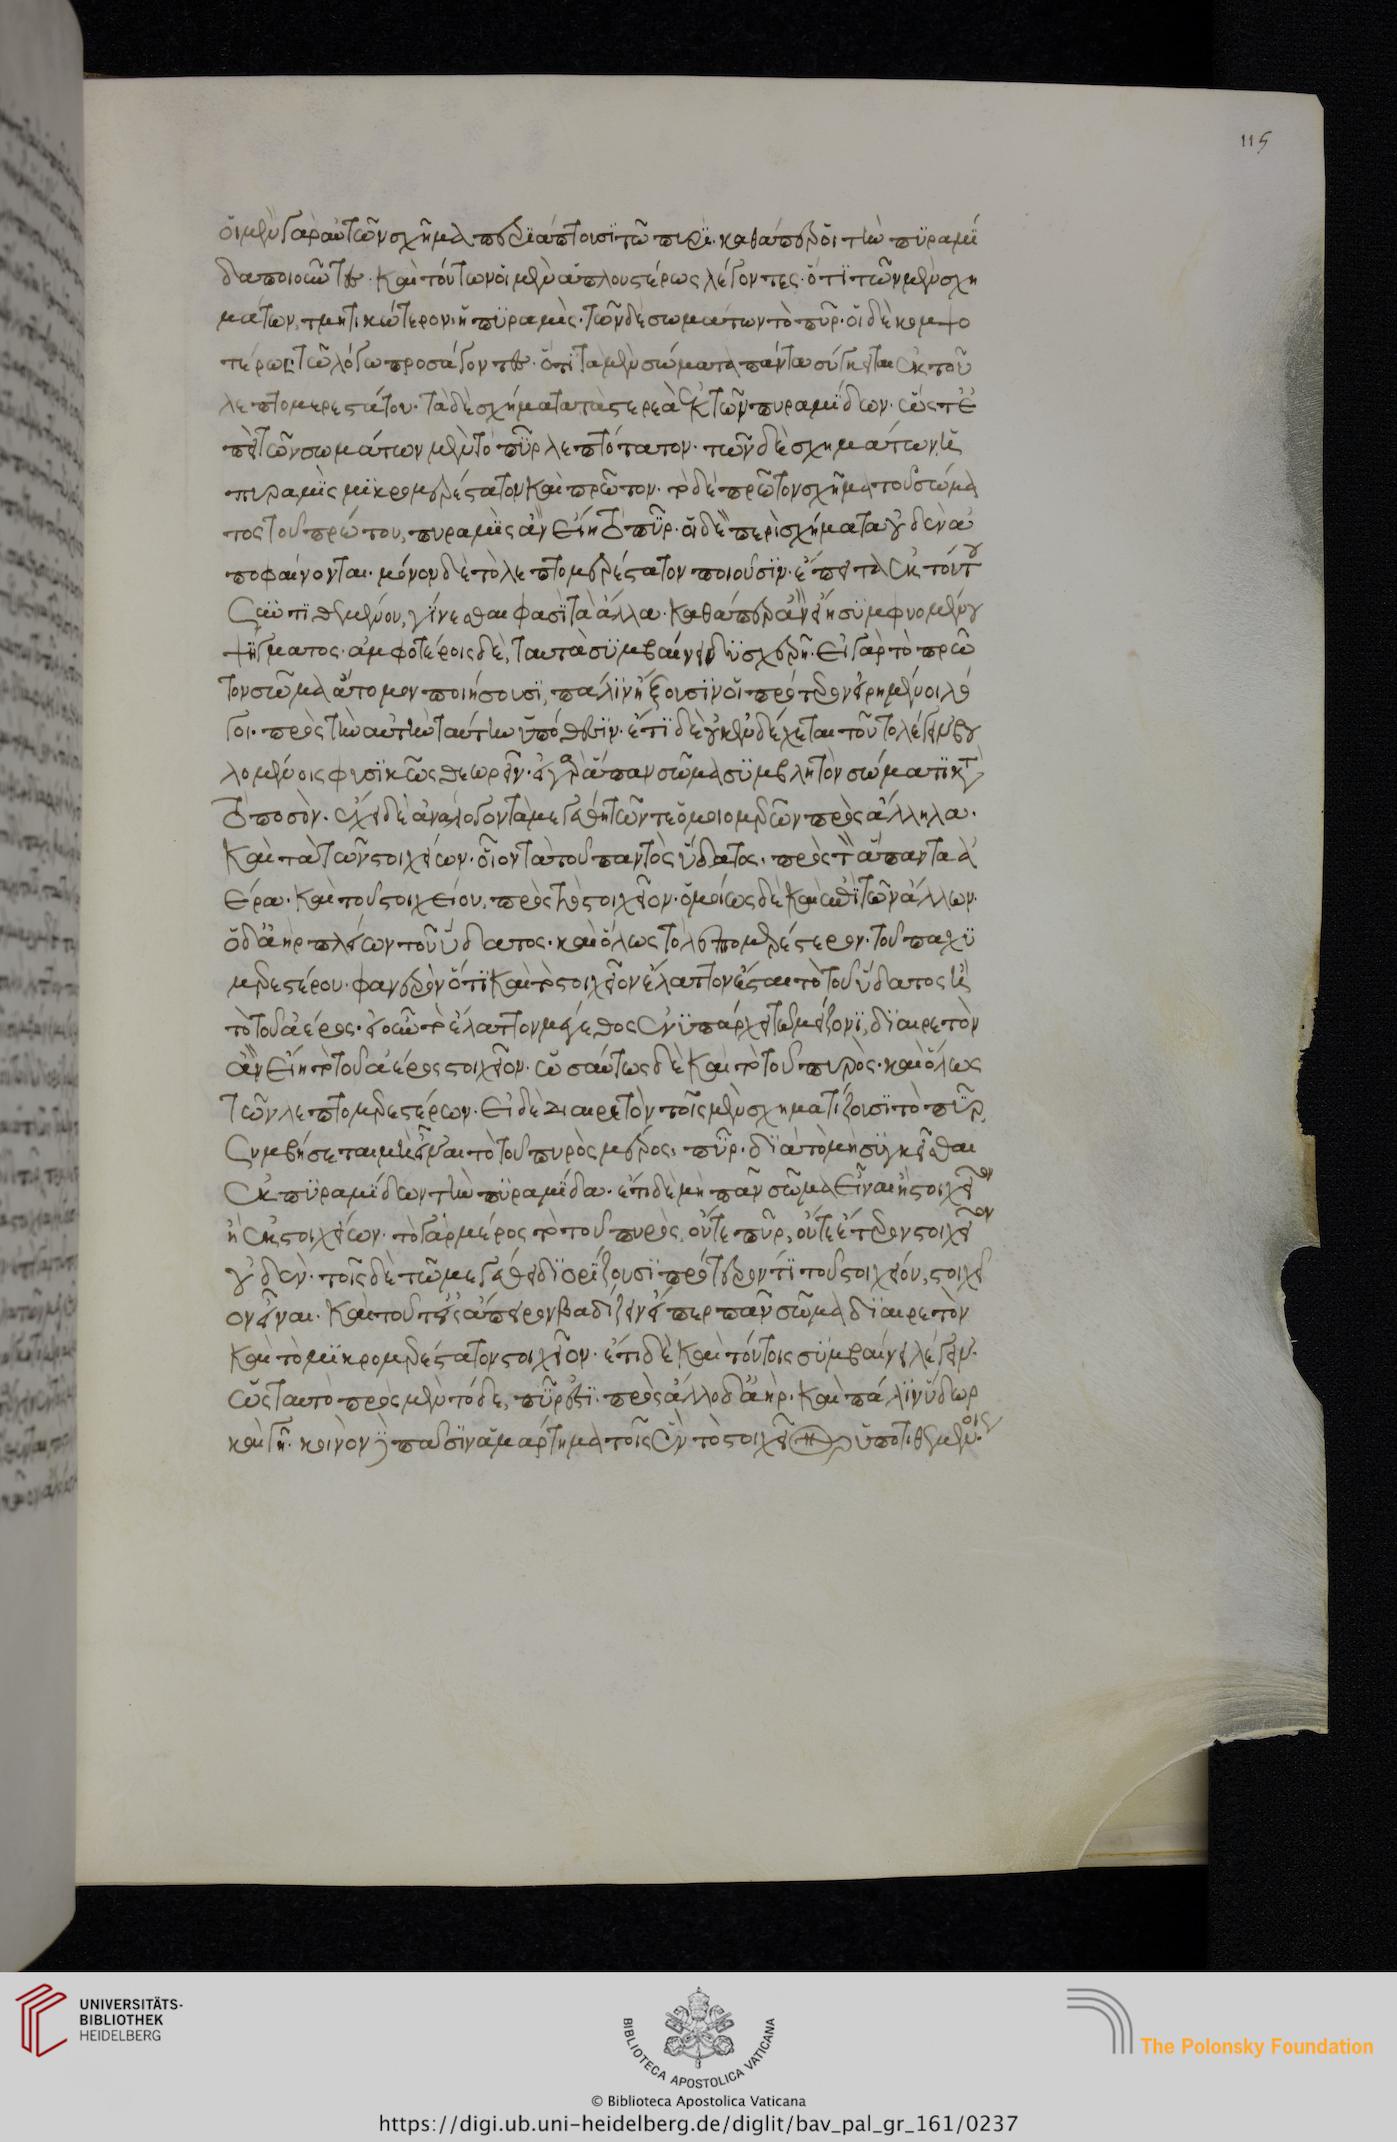 οἱ μὲν γὰρ αὐτῶν σχῆμα περϊάπτουσϊ τῶ πυρϊ· καθάπερ οἱ τὴν πϋραμϊ
δα ποιοῦντες· καὶ τούτων οἱ μὲν ἁπλουστέρως λέγοντες· ὅτϊ τῶν μὲν σχη
μάτων, τμητικώτερον· ἡ πϋραμὶς· τῶν δὲ σωμάτων τὸ πῦρ· οἱ δὲ κομψο
τέρως τῶ λόγω προσάγοντες· ὅτι τὰ μὲν σώματα πάντα σύγκειται ἐκ τοῦ
λεπτομερεστάτου· τὰ δὲ σχήματα τὰ στερεὰ ἐκ τῶν πυραμίδων· ὥστ ἐ
πεὶ τῶν σωμάτων μὲν τὸ πῦρ λεπτότατον· τῶν δὲ σχημάτων, ἡ
πυραμὶς μϊκρομερέστατον καὶ πρῶτον· τὸ δὲ πρῶτον σχῆμα τοῦ σώμα
τος τοῦ πρώτου, πυραμὶς ἂν εἴη τὸ πῦρ· οἱ δὲ περὶ σχήματα οὐδὲν ἀ
ποφαίνονται· μόνον δὲ τὸ λεπτομερέστατον ποιοῦσϊν· ἔπειτα ἐκ τούτου
συντιθεμένου, γίνεσθαι φασὶ τὰ ἄλλα· καθάπερ ἂν εἰ συμφυομένου
ψήγματος· ἀμφοτέροις δὲ, ταυτὰ συμβαίνει δυσχερῆ· εἰ γὰρ τὸ πρῶ
τον σῶμα ἄτομον ποιήσουσϊ, πάλϊν ἥξουσϊν οἱ πρότερον εἰρημένοι λό
γοι· πρὸς τὴν αὐτὴν ταύτην ὑπόθεσϊν· ἔτι δὲ οὐκ ἐνδέχεται τοῦτο λέγειν βου
λομένοις φυσϊκῶς θεωρεῖν· εἰ γὰρ ἅπαν σῶμα συμβλητὸν σώματι κατὰ
τὸ ποσόν· ἔχει δὲ ἀνάλογον τὰ μεγέθη τῶν τε ὁμοιομερῶν πρὸς ἄλληλα·
καὶ τὰ τῶν στοιχείων· οἷον τὰ τοῦ παντὸς ὕδατος· πρὸς τὸν ἅπαντα ἀ
έρα· καὶ τοῦ στοιχείου, πρὸς τὸ στοιχεῖον· ὁμοίως δὲ καὶ ἐπὶ τῶν ἄλλων·
ὁ δ ἀὴρ πλείων τοῦ ὕδατος· καὶ ὅλως τὸ λεπτομερέστερον· τοῦ παχυ
μερεστέρου· φανερὸν ὅτϊ καὶ τὸ στοιχεῖον ἔλαττον ἔσται τὸ τοῦ ὕδατος ἢ
τὸ τοῦ ἀέρος· εἰ οὖν τὸ ἔλαττον μέγεθος ἐνυπάρχει τῶ μείζονϊ, διαιρετὸν
ἂν εἴη τὸ τοῦ ἀέρος στοιχεῖον· ὡσαύτως δὲ καὶ τὸ τοῦ πυρὸς· καὶ ὅλως
τῶν λεπτομερεστέρων· εἰ δὲ διαιρετὸν τοῖς μὲν σχηματίζουσϊ τὸ πῦρ,
συμβήσεται μὴ εἶναι τὸ τοῦ πυρὸς μέρος· πῦρ· διὰ τὸ μὴ συγκεῖσθαι
ἐκ πυραμίδων τὴν πϋραμϊδα· ἔτι δὲ μὴ πᾶν σῶμα εἶναι ἢ στοιχεῖον
ἢ ἐκ στοιχείων· τὸ γὰρ μέρος τὸ τοῦ πυρὸς, οὔτε πῦρ, οὔτε ἕτερον στοιχεῖον
οὐδέν· τοῖς δὲ τῶ μεγέθει διορίζουσϊ πρότερόν τι τοῦ στοιχείου, στοιχεῖ
ον εἶναι· καὶ τοῦτ εἰς ἄπειρον βαδίζειν εἴπερ πᾶν σῶμα διαιρετὸν
καὶ τὸ μϊκρομερέστατον στοιχεῖον· ἔτι δὲ καὶ τούτοις συμβαίνει λέγειν·
ὡς ταυτὸ πρὸς μὲν τόδε, πῦρ ἐστϊ· πρὸς ἄλλο δ ἀὴρ· καὶ πάλϊν ὕδωρ
καὶ γῆ· κοινὸν δὲ πᾶσϊν ἁμάρτημα τοῖς ἓν τὸ στοιχεῖον ὑποτιθεμένοις
115
UNIVERSITÄTS-
BIBLIOTHEK
HEIDELBERG
BIBLIOTECA APOSTOLICA VATICANA
The Polonsky Foundation
© Biblioteca Apostolica Vaticana
https://digi.ub.uni-heidelberg.de/diglit/bav_pal_gr_161/0237